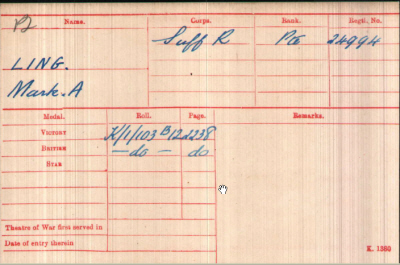 Name. Corps. Rank. Regtl. No.
Suff R Pte 24994
LING.
Mark. A
Medal. Roll. Page. Remarks.
VICTORY K/1/103 B12 2238
BRITISH — do — do
STAR
Theatre of War first served in
Date of entry therein
K. 1380